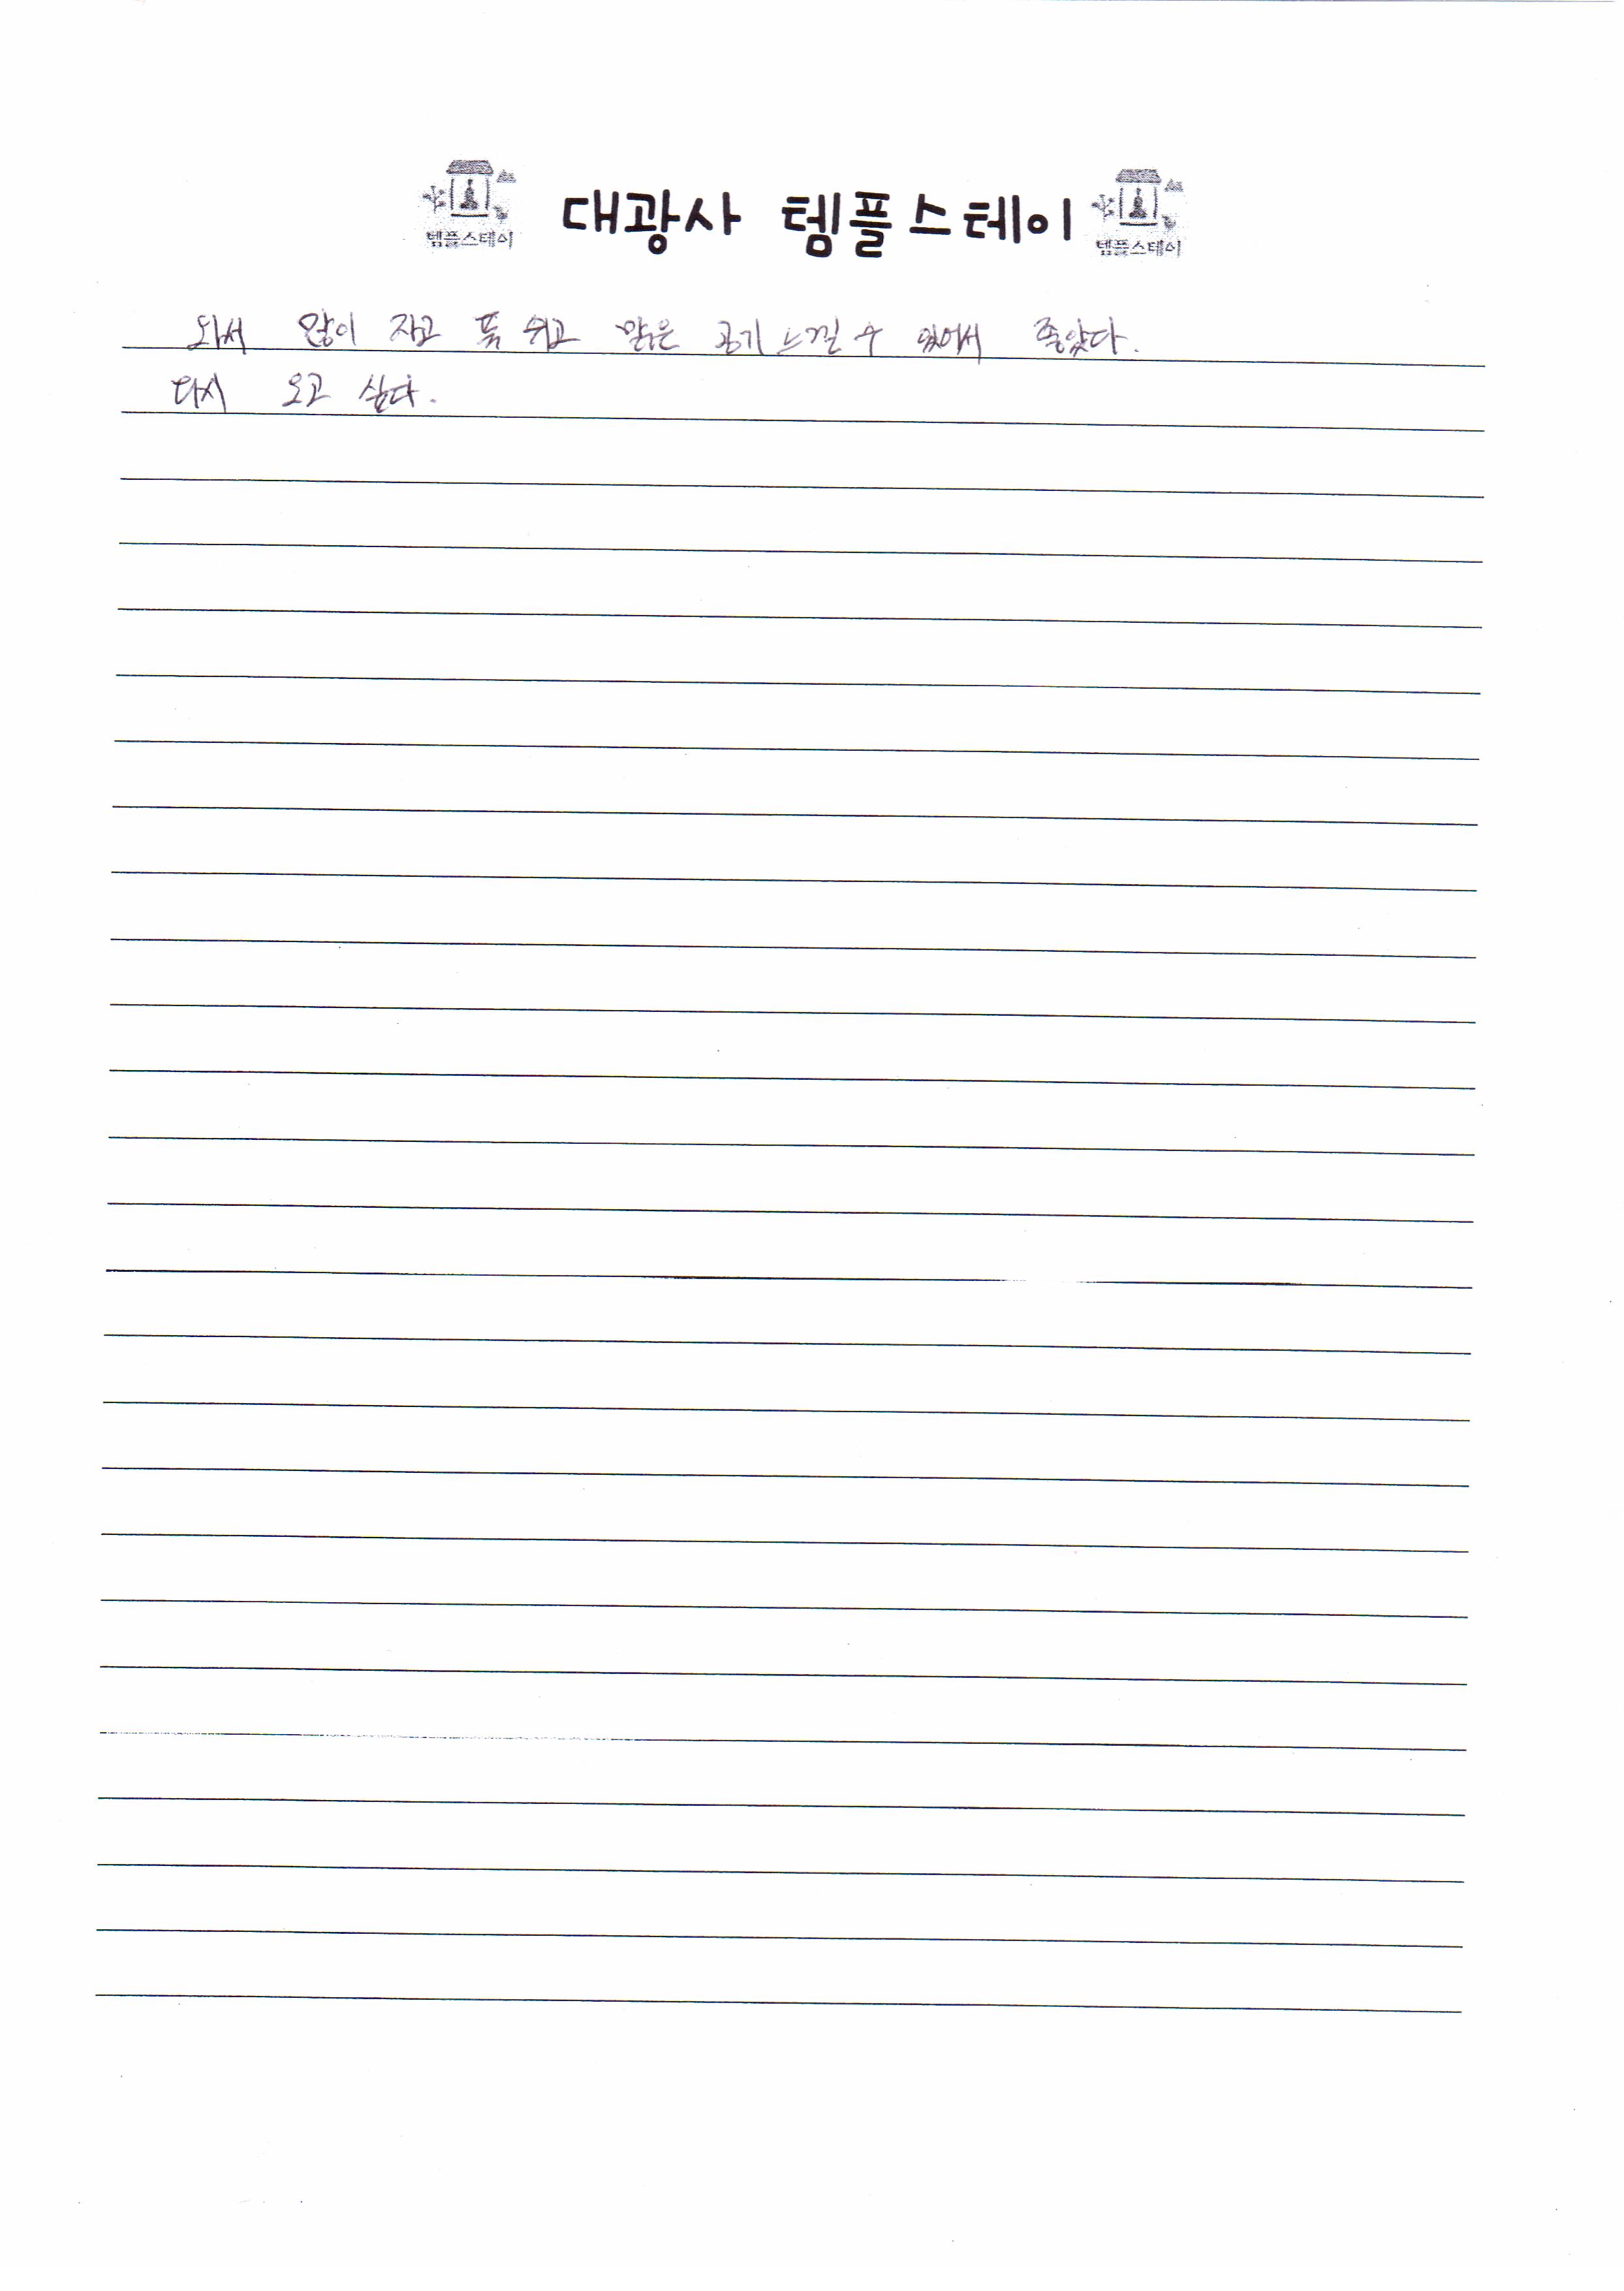 대광사 템플스테이
템플스테이
템플스테이
와서 많이 자고 푹 쉬고 맑은 공기 느낄 수 있어서 좋았다.
다시 오고 싶다.